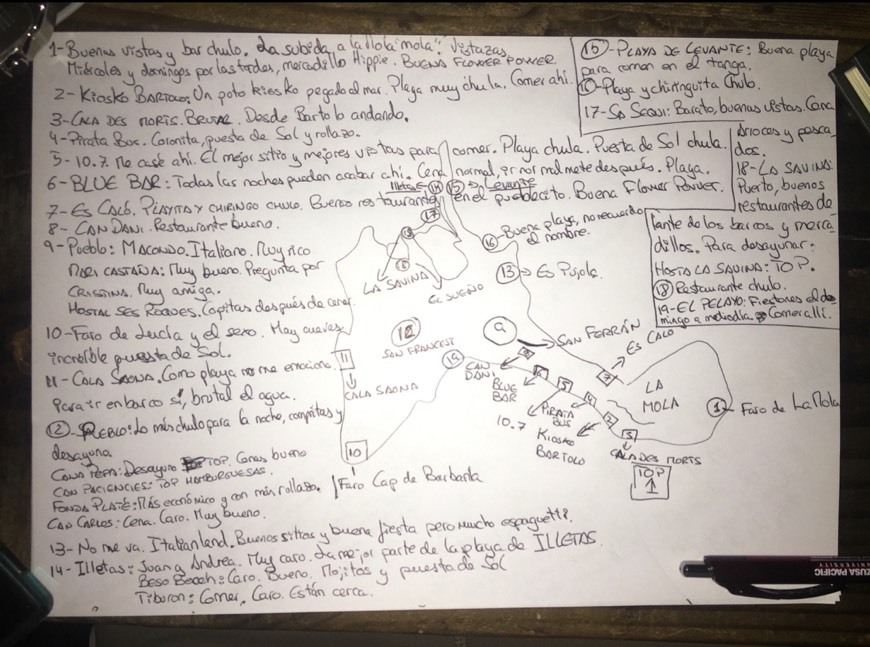 1- Buenas vistas y bar chulo. La subida a la Mola "mola". Vistazas.
Miércoles y domingos por las tardes, mercadillo Hippie. BUENA FLOWER POWER
2- KIOSKO BARTOLO: Un puto kiosko pegado al mar. Playa muy chula. Comer ahí.
3- CALA DES MORTS. BRUTAL. Desde Bartolo andando.
4- Pirata Bus. Coronita, puesta de Sol y rollazo.
5- 10.7. Me casé ahí. El mejor sitio y mejores vistas para comer. Playa chula. Puesta de Sol chula.
6- BLUE BAR: Todas las noches pueden acabar ahí. Cena normal, pr normalmente después. Playa.
7- ES CALÓ. PLAYITA Y CHIRINGO CHULO. Buenos restaurantes en el pueblecito. Buena Flower Power.
8- CAN DANI. Restaurante bueno.
9- Pueblo: MACONDO. Italiano. Muy rico
MARI CASTAÑA: Muy bueno. Pregunta por
CRISTINA. Muy amiga.
HOSTAL SES ROQUES. Copitas después de cenar.
10- Faro de Lucía y el sexo. Hay cuevas,
increíble puesta de Sol.
11- CALA SAONA. Como playa no me emociona.
Para ir en barco sí, brutal el agua.
12- PUEBLO: Lo más chulo para la noche, compritas y
desayuno
CANA PEPA: Desayuno TOP. Cenas bueno
CAN PACIENCIES: TOP HAMBURGUESAS.
FONDA PLATÉ: Más económico y con más rollazo.
CAN CARLOS: Cena. Caro. Muy bueno.
13- No me va. Italianland. Buenos sitios y buena fiesta pero mucho espaguetti.
14- Illetas: Juan y Andrea. Muy caro. La mejor parte de la playa de ILLETAS.
Beso Beach: Caro. Bueno. Mojitos y puesta de Sol
Tiburon: Comer. Caro. Están cerca.
15- PLAYA DE LEVANTE: Buena playa
para comer en el tanga.
16- Playa y chiringuito Chulo.
17- SA SEQUI: Barato, buenas vistas. Cena
arroces y pesca
dos.
18- LA SAVINA:
Puerto, buenos
restaurantes de
lante de los barcos y merca
dillos. Para desayunar:
HOSTAL LA SAVINA: TOP.
18 Restaurante chulo.
19- EL PELAYO: Fiestones el do
mingo a mediodía. Comer allí.
Illetas 14 15 Levante
17
18
LA SAVINA
16 Buena playa, no recuerdo
el nombre.
13 Es Pujols.
12
SAN FRANCESC
9
SAN FERRÁN
7 ES CALÓ
11
CALA SAONA
19
8
CAN
DANI
6
BLUE
BAR
5
10.7
4
PIRATA
BUS
2
KIOSKO
BARTOLO
3
CALA DES MORTS
TOP
LA
MOLA
1 Faro de La Mola
10
Faro Cap de Barbaria
AZUSA PACIFIC
UNIVERSITY